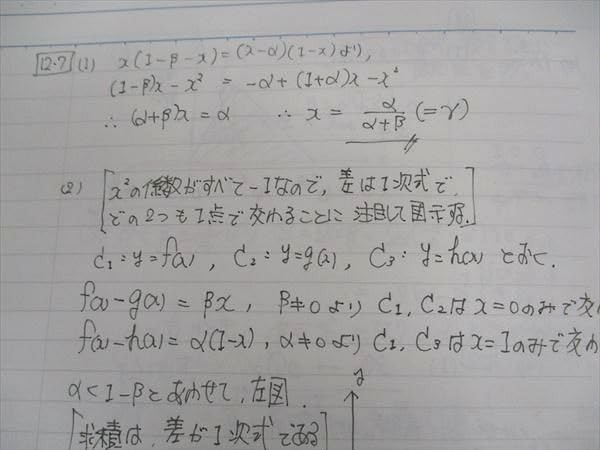 12・7 (1) x(1-β-x)=(x-α)(1-x)より,
(1-β)x-x² = -α+(1+α)x-x²
∴ (α+β)x=α ∴ x= α/(α+β) (=γ)
(2) [x²の係数がすべて-1なので, 差は1次式で,
どの2つも1点で交わることに注目して図示する.]
C₁:y=f(x), C₂:y=g(x), C₃:y=h(x) とおく.
f(x)-g(x)=βx, β≠0より C₁, C₂はx=0のみで交
f(x)-h(x)=α(1-x), α≠0より C₁, C₃はx=1のみで交わ
α<1-βとあわせて, 左図.
y
[求積は, 差が1次式である